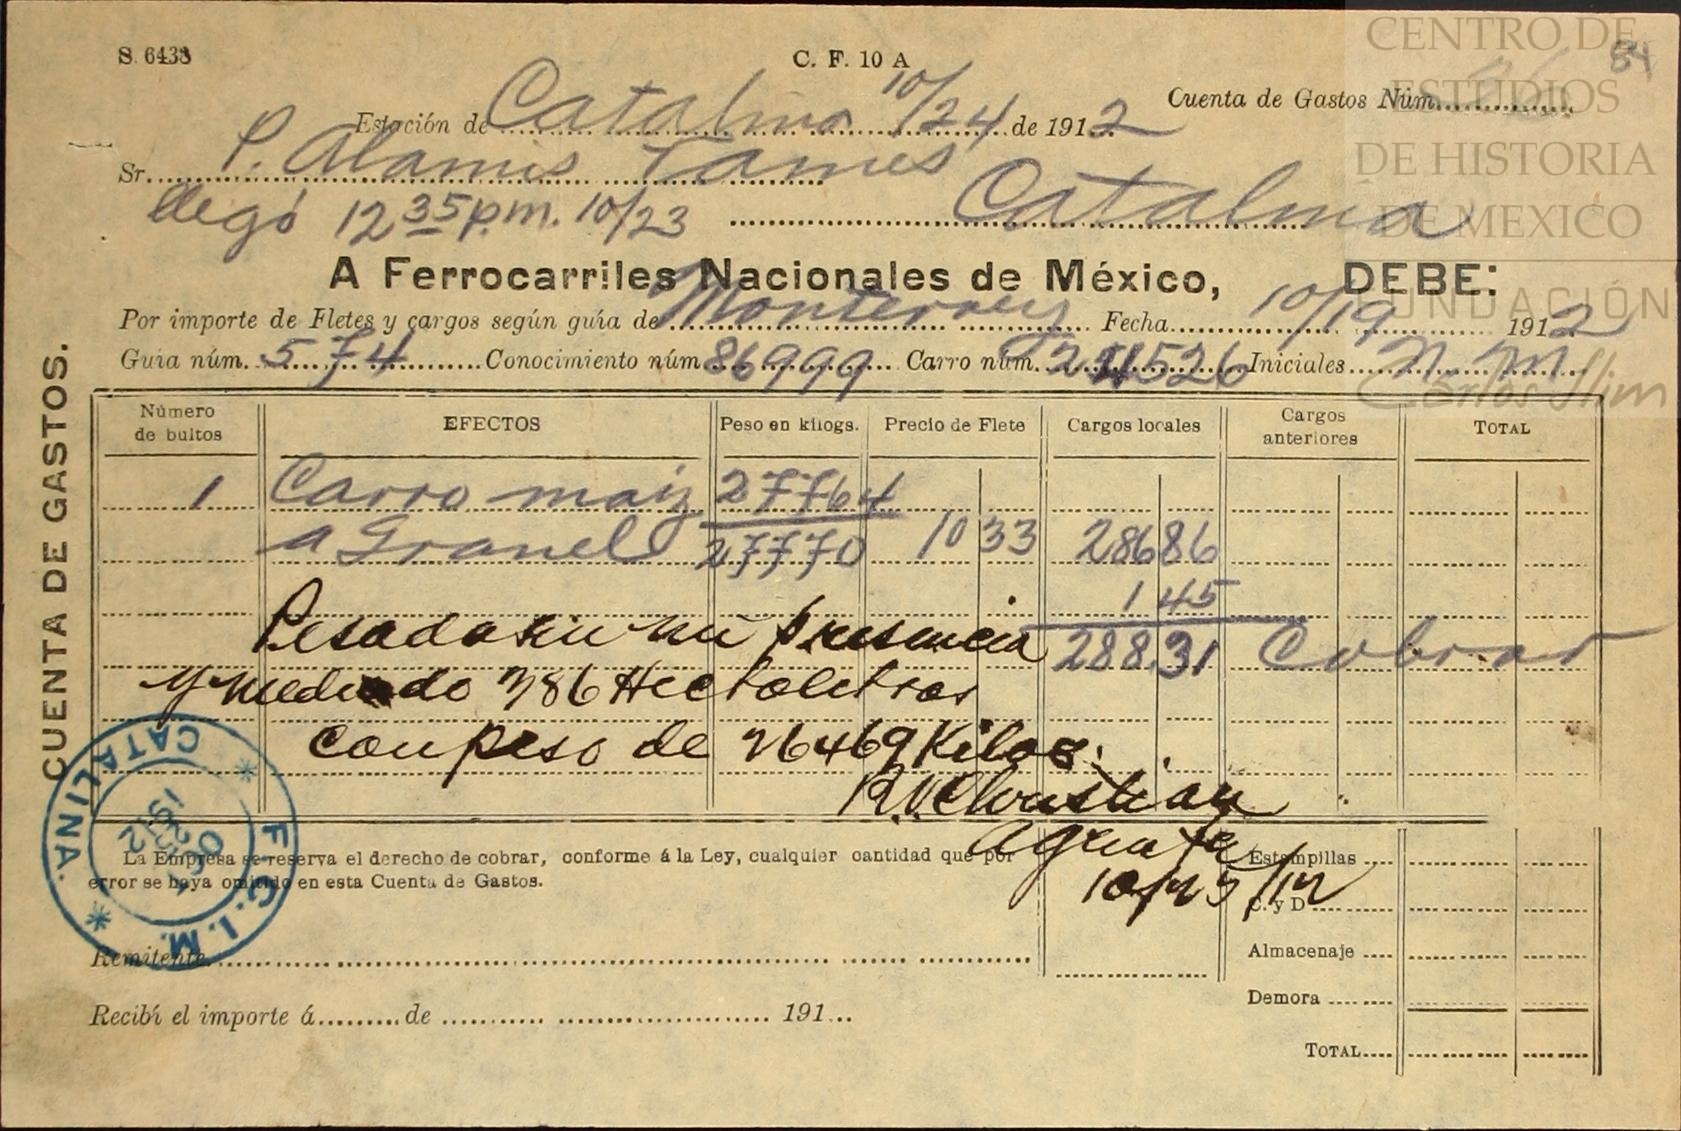 S. 6433
C. F. 10 A
84
Cuenta de Gastos Núm.
Estación de Catalina 10/24 de 1912
Sr. P. Alamis Tames
llegó 12 35 p.m. 10/23 Catalina
A Ferrocarriles Nacionales de México, DEBE:
Por importe de Fletes y cargos según guía de Monterrey Fecha 10/19 1912
Guía núm. 574 Conocimiento núm 86999 Carro núm. Iniciales N. M.
CUENTA DE GASTOS.
Número de bultos EFECTOS Peso en kilogs. Precio de Flete Cargos locales Cargos anteriores TOTAL
1 Carro maiz 27764
a Granel 27770 10 33 286 86
1 45
Pesado en mi presencia 288.31 Cobrar
y medido 386 Hectolitros
con peso de 26469 Kilos.
Agente
10/25/12
F. C. I. M.
CATALINA
OCT 23 1912
La Empresa se reserva el derecho de cobrar, conforme á la Ley, cualquier cantidad que por
error se haya omitido en esta Cuenta de Gastos.
Estampillas
C. y D.
Remitente
Almacenaje
Demora
Recibí el importe á de 191
TOTAL
CENTRO DE
ESTUDIOS
DE HISTORIA
DE MEXICO
FUNDACIÓN
Carlos Slim